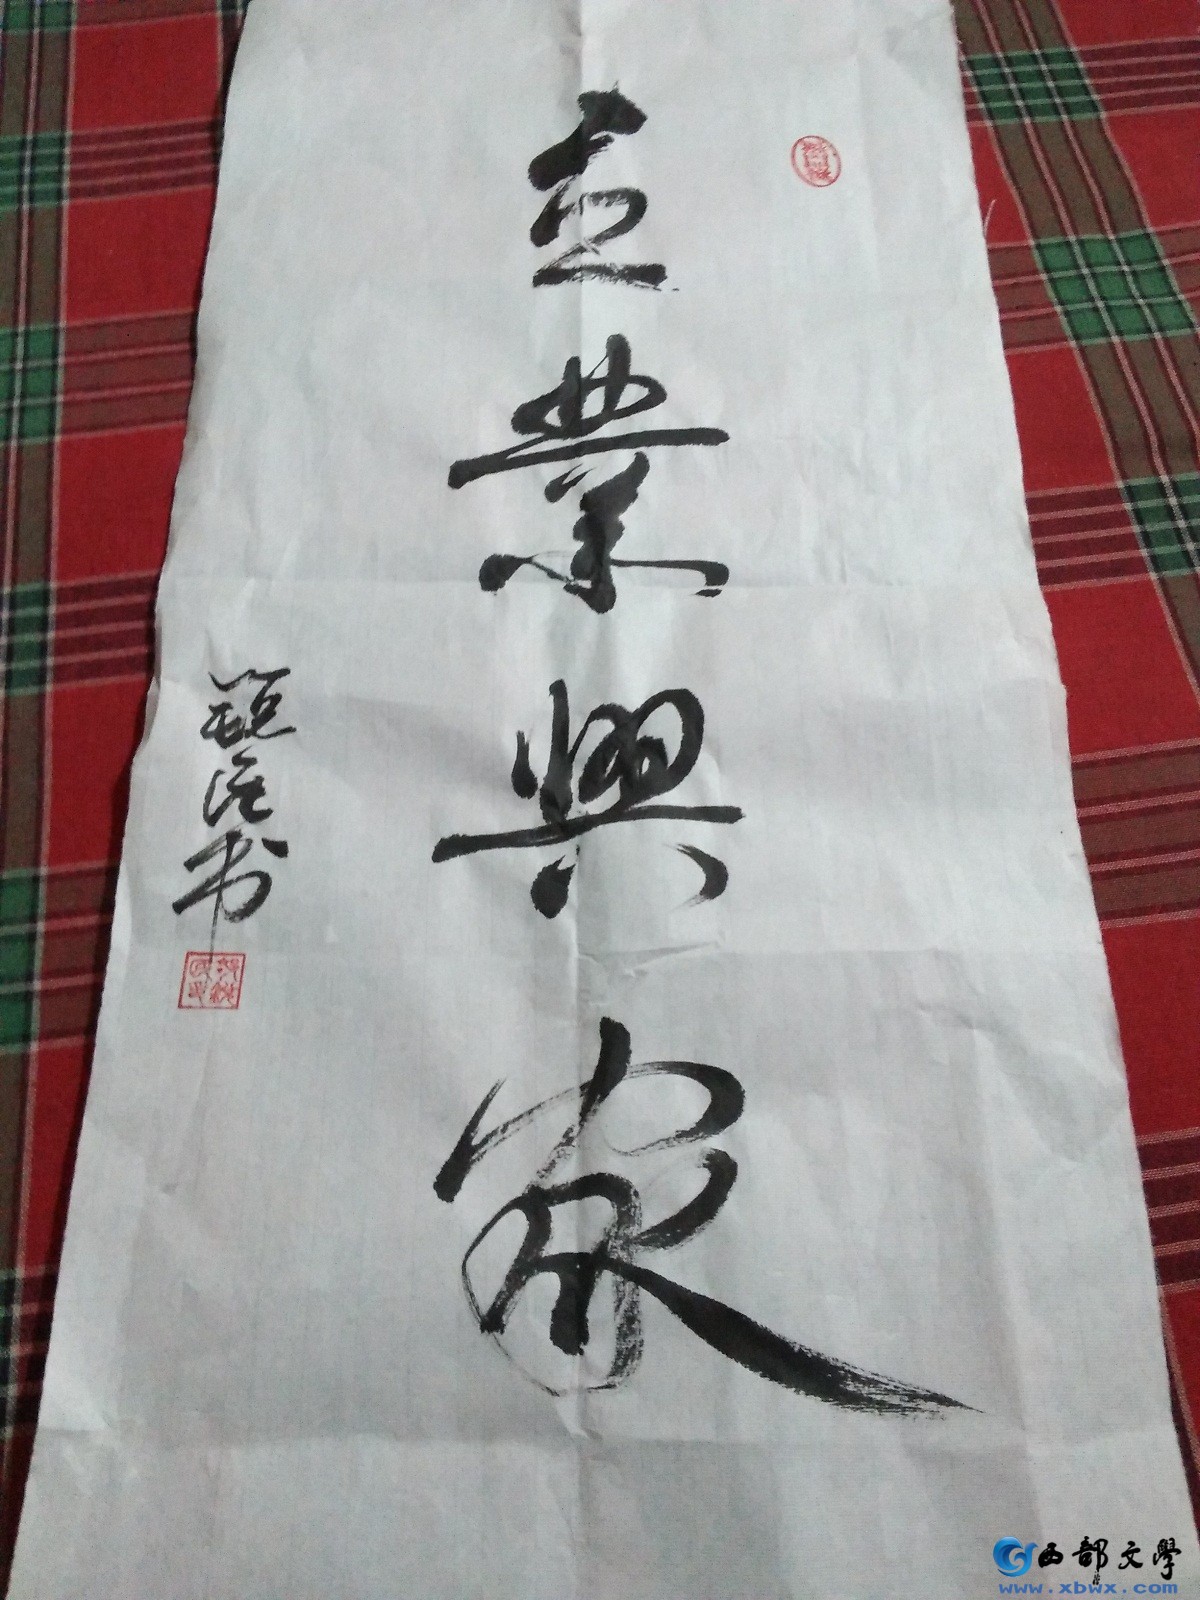 立業興家
书
西部文學
www.xbwx.com